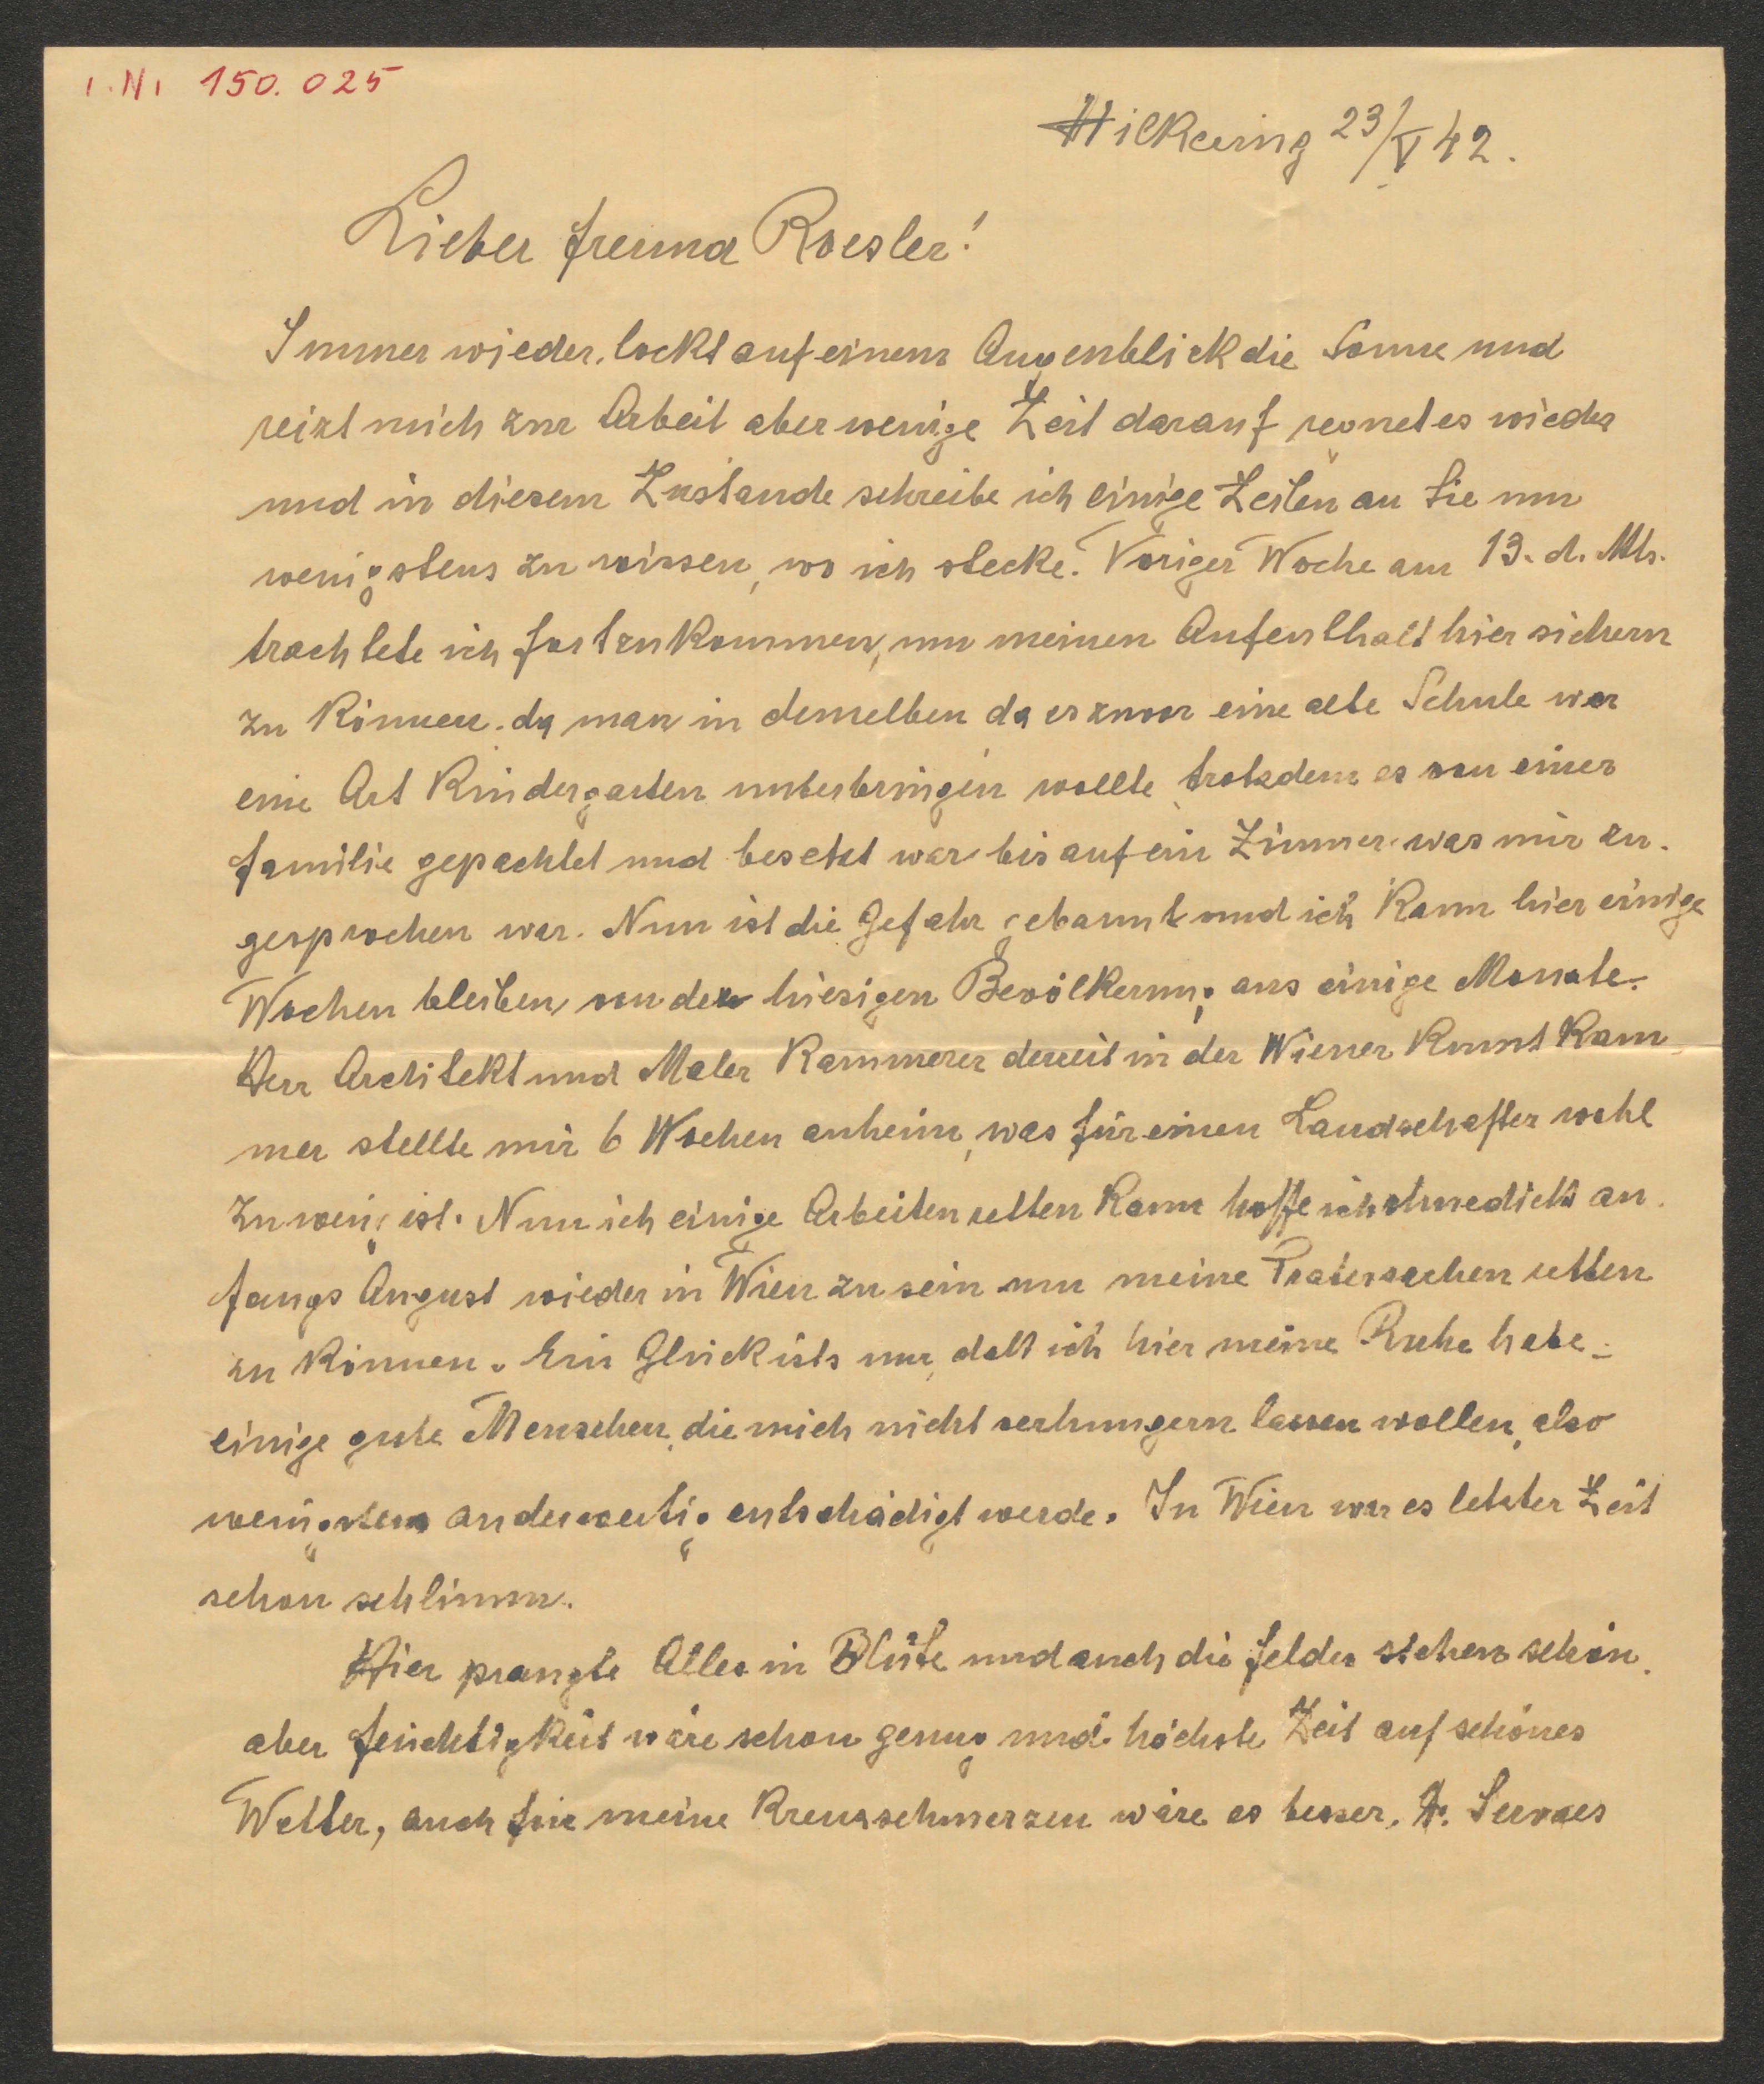 I. N. 150.025
Hilkering 23/V 42.
Lieber Freund Roesler!
Immer wieder lockt auf einen Augenblick die Sonne und
reizt mich zur Arbeit aber wenige Zeit darauf regnet es wieder
und in diesem Zustande schreibe ich einige Zeilen an Sie um
wenigstens zu wissen, wo ich stecke. Voriger Woche am 13. d. Mts.
trachtete ich fortzukommen, um meinen Aufenthalt hier sichern
zu können. da man in demselben da es zuvor eine alte Schule war
eine Art Kindergarten unterbringen wollte, trotzdem es von einer
Familie gepachtet und besetzt war bis auf ein Zimmer was mir zu-
gesprochen war. Nun ist die Gefahr gebannt und ich kann hier einige
Wochen bleiben, von der hiesigen Bevölkerung aus einige Monate.
Herr Architekt und Maler Kammerer derzeit in der Wiener Kunst Kam-
mer stellte mir 6 Wochen anheim, was für einen Landschafter wohl
zu wenig ist. Nun ich einige Arbeiten retten kann hoffe ich an-
fangs August wieder in Wien zu sein um meine Pratersachen retten
zu können. Ein Glück ists nur, daß ich hier meine Ruhe habe -
einige gute Menschen, die mich nicht verhungern lassen wollen, also
wenigstens anderwertig entschädigt werde. In Wien war es letzter Zeit
schon schlimm.
Hier prangte Alles in Blüte und auch die Felder stehen schön.
aber Feuchtigkeit wäre schon genug und höchste Zeit auf schönes
Wetter, auch für meine Kreuzschmerzen wäre es besser. Dr. Servaes